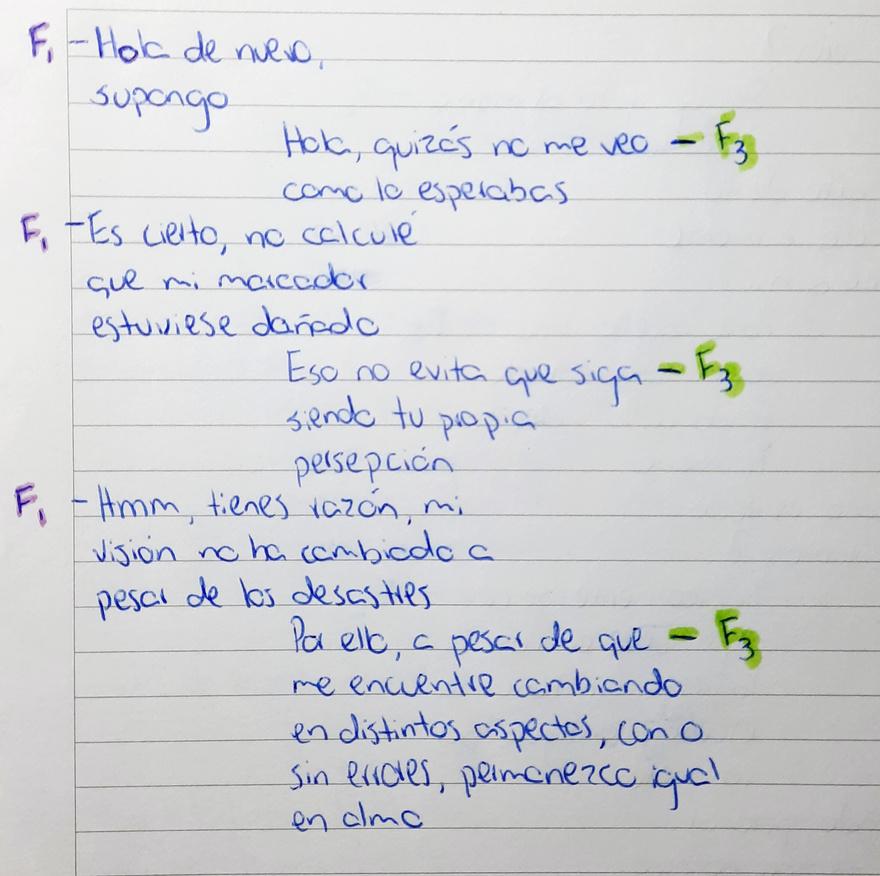 F₁ - Hola de nuevo,
supongo
Hola, quizás no me veo - F₃
como lo esperabas
F₁ - Es cierto, no calculé
que mi marcador
estuviese dañado
Eso no evita que siga - F₃
siendo tu propia
persepción
F₁ - Hmm, tienes razón, mi
visión no ha cambiado a
pesar de los desastres
Por ello, a pesar de que - F₃
me encuentre cambiando
en distintos aspectos, con o
sin errores, permanezco igual
en alma